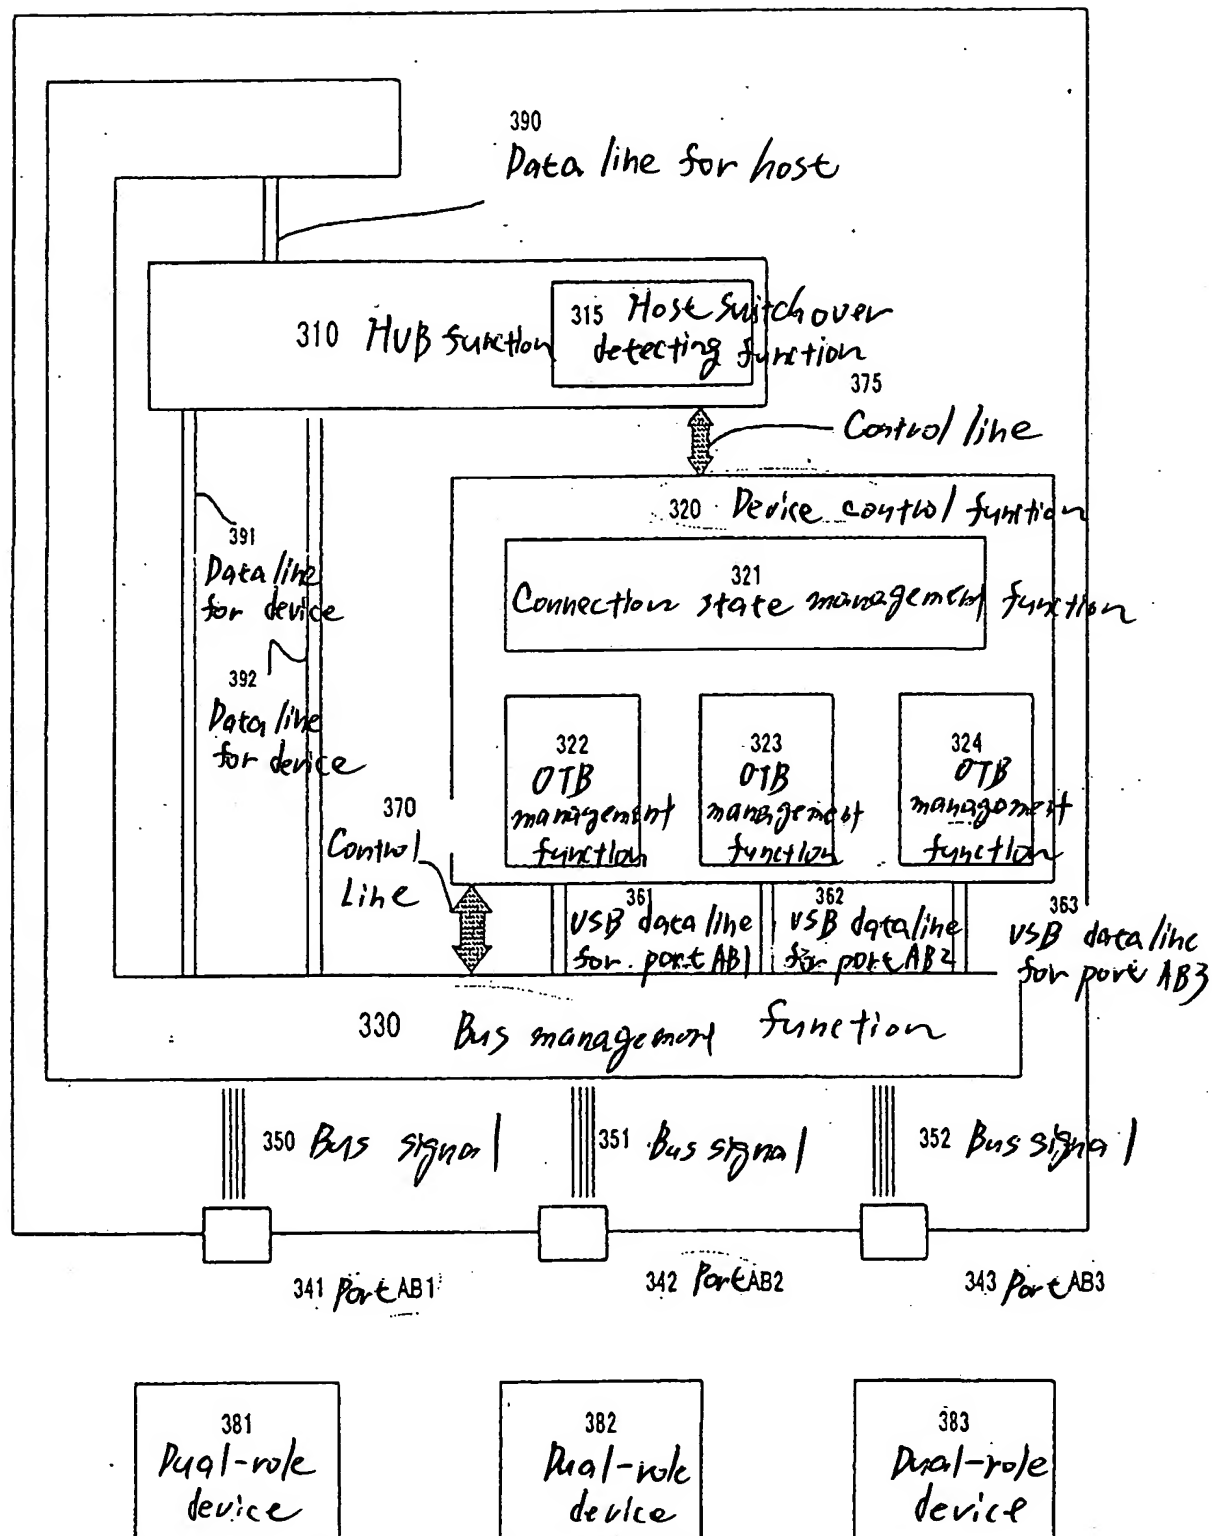 390
Data line for host
315 Host switchover
detecting function
310 HUB function
375
Control line
320 Device control function
391
Data line
for device
321
Connection state management function
392
Data line
for device
322
OTB
management
function
323
OTB
management
function
324
OTB
management
function
370
Control
Line
361
USB data line
for port AB1
362
USB data line
for port AB2
363
USB data line
for port AB3
330 Bus management function
350 Bus signal
351 Bus signal
352 Bus signal
341 Port AB1
342 Port AB2
343 Port AB3
381
Dual-role
device
382
Dual-role
device
383
Dual-role
device